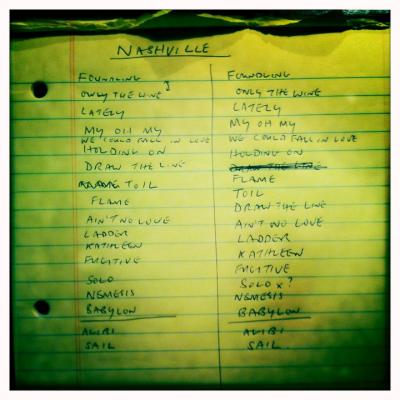 NASHVILLE
FOUNDLING
ONLY THE WINE
LATELY
MY OH MY
WE COULD FALL IN LOVE
HOLDING ON
DRAW THE LINE
TOIL
FLAME
AIN'T NO LOVE
LADDER
KATHLEEN
FUGITIVE
SOLO
NEMESIS
BABYLON
ALIBI
SAIL
FOUNDLING
ONLY THE WINE
LATELY
MY OH MY
WE COULD FALL IN LOVE
HOLDING ON
DRAW THE LINE
FLAME
TOIL
DRAW THE LINE
AIN'T NO LOVE
LADDER
KATHLEEN
FUGITIVE
SOLO x ?
NEMESIS
BABYLON
ALIBI
SAIL